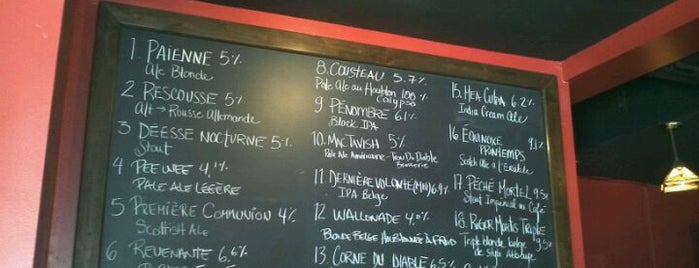 1. PAÏENNE 5%
Ale Blonde
2 RESCOUSSE 5%
Alt → Rousse Allemande
3 DÉESSE NOCTURNE 5%
Stout
4 PEE WEE 4,1%
PALE ALE LÉGÈRE
5 PREMIÈRE COMMUNION 4%
SCOTTISH ALE
6 REVENANTE 6.6%
8. COUSTEAU 5.7%
Pale Ale au Houblon 100%
Calypso
9. PÉNOMBRE 6.1%
Black IPA
10. MACTAVISH 5%
Pale Ale Américaine - Trou Du Diable
11. DERNIÈRE VOLONTÉ 6.5%
IPA Belge
12 WALLONADE 4,0%
BLONDE BELGE HOUBLONNÉE À FROID
13. CORNE DU DIABLE 6.5%
15. MEA CULPA 6.2%
India Cream Ale
16. EQUINOXE 9.1%
PRINTEMPS
Scotch Ale à l'Érable
17. PÉCHÉ MORTEL 9.5%
Stout Impérial au Café
18. ROGER MORTIS TRIPLE
Triple blonde belge 9.5%
de Style Abbaye